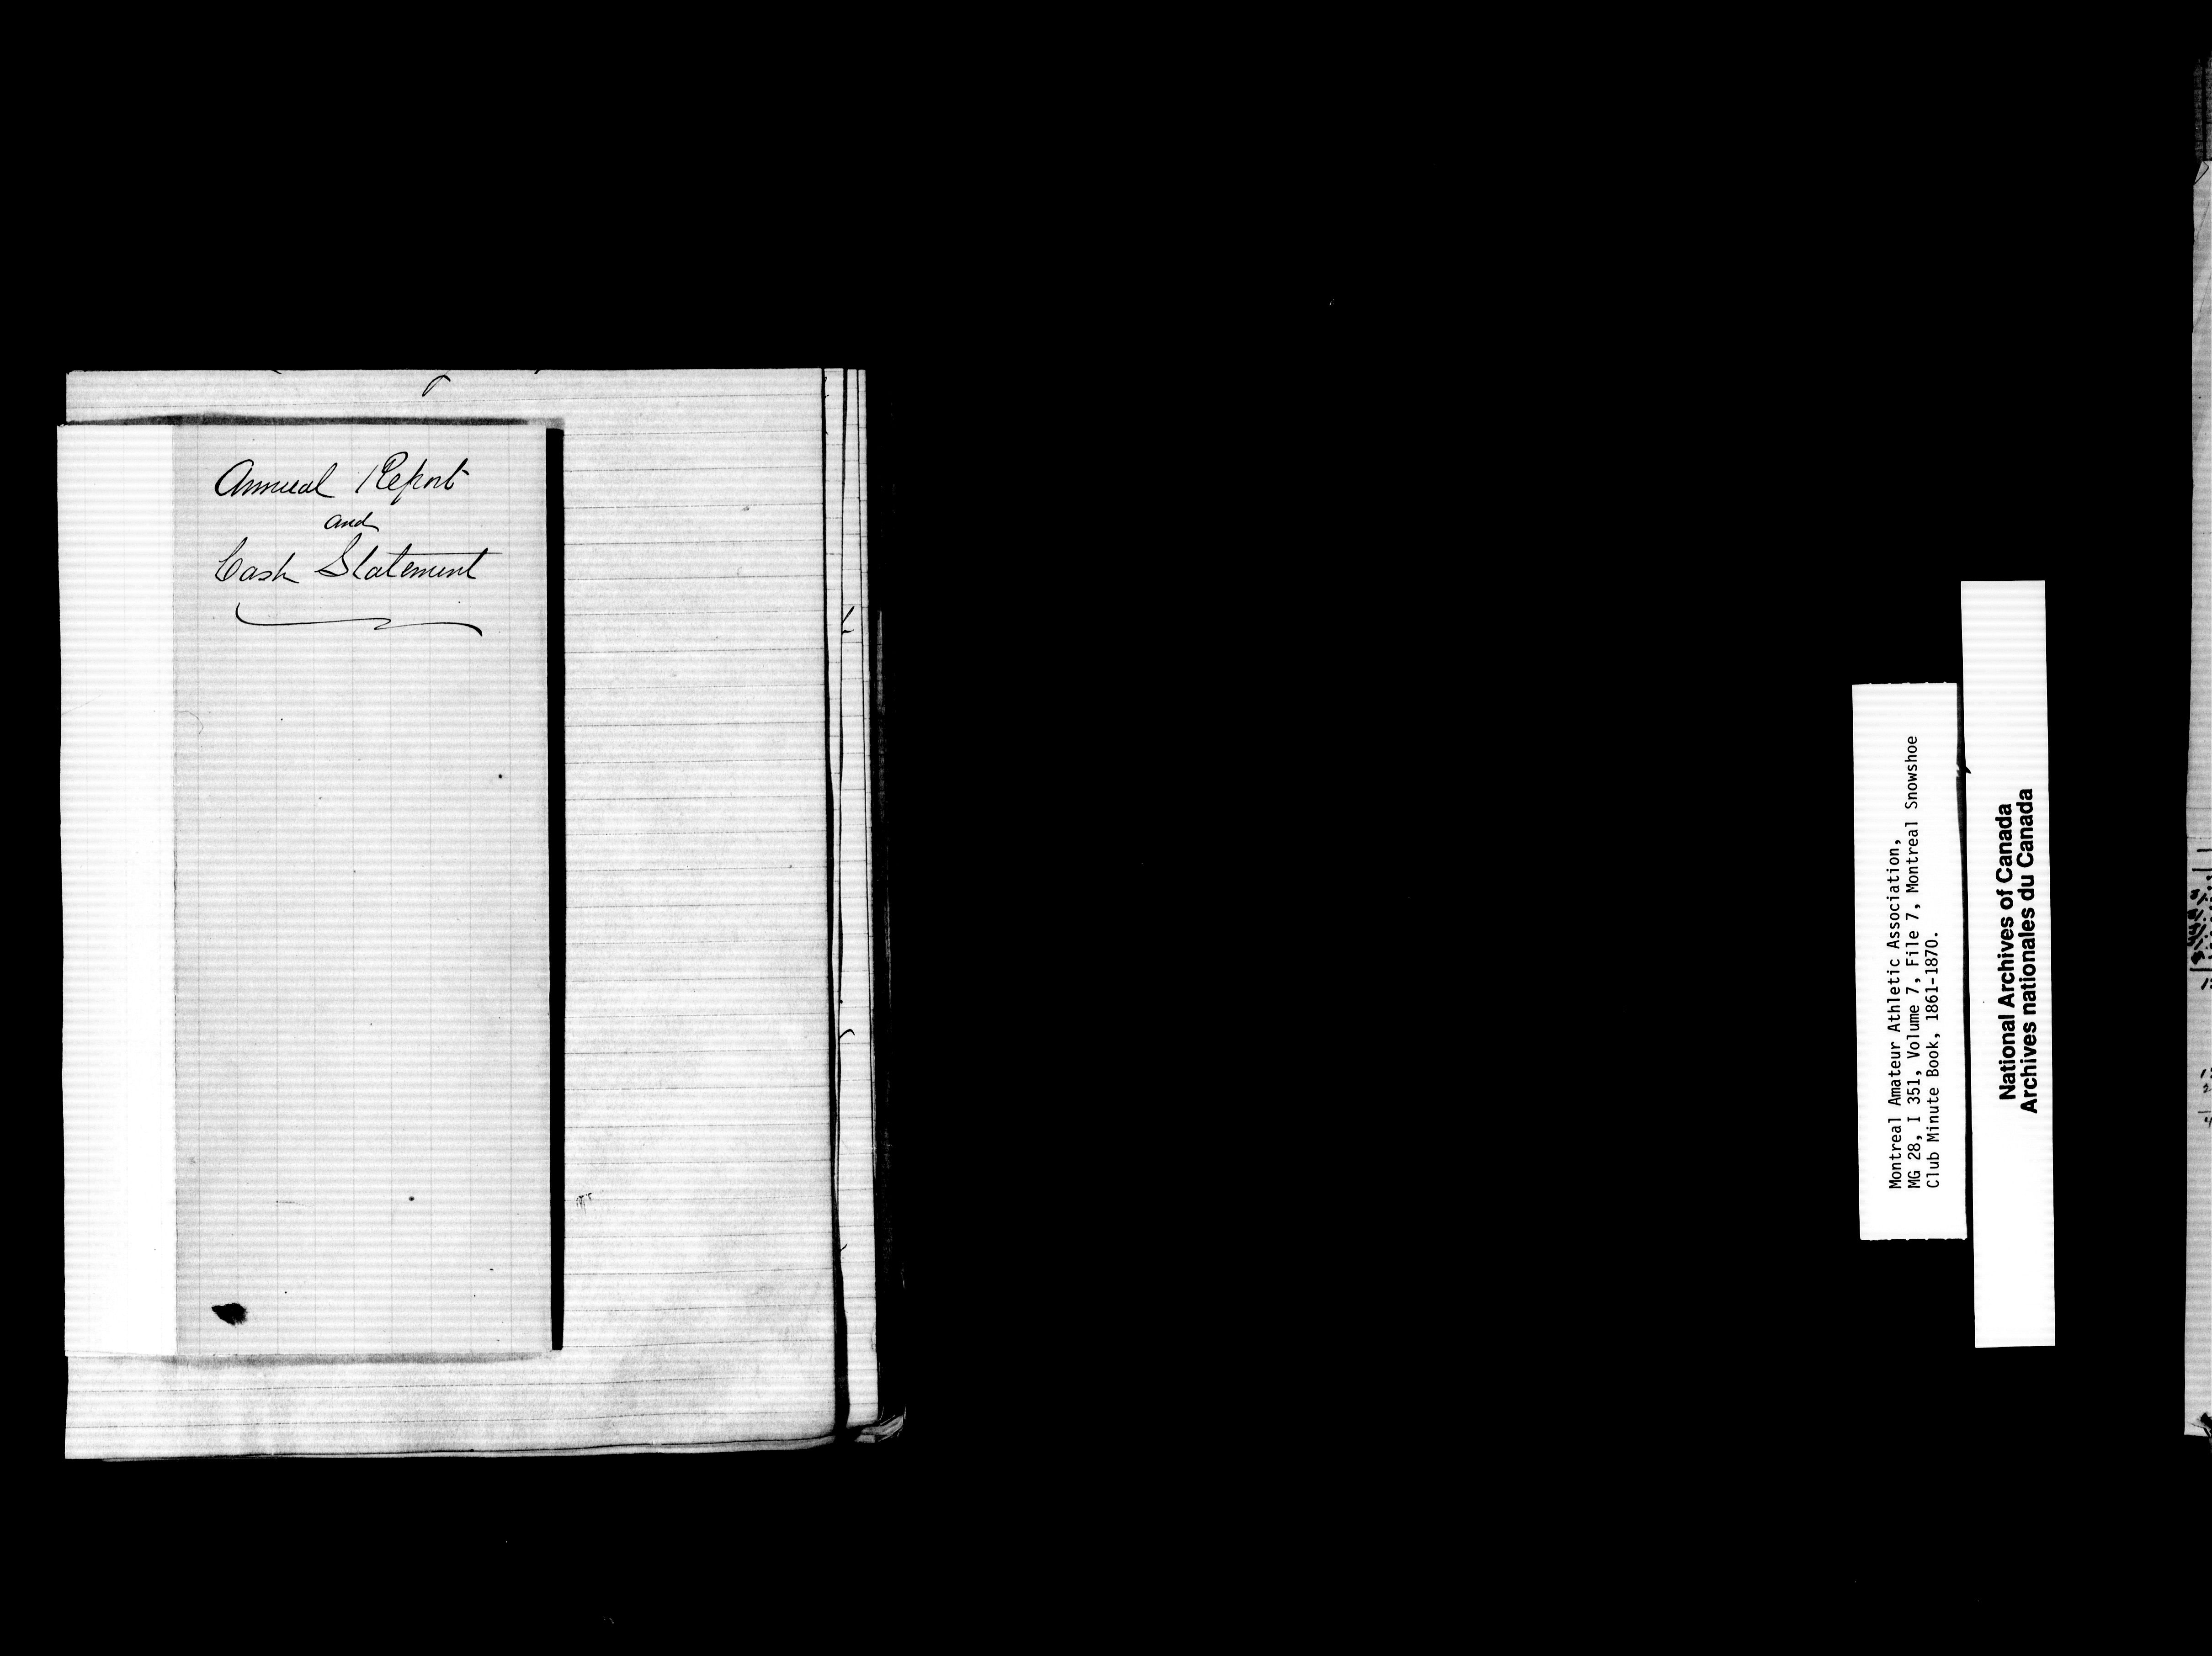 Annual Report
and
Cash Statement
Montreal Amateur Athletic Association,
MG 28, I 351, Volume 7, File 7, Montreal Snowshoe
Club Minute Book, 1861-1870.
National Archives of Canada
Archives nationales du Canada